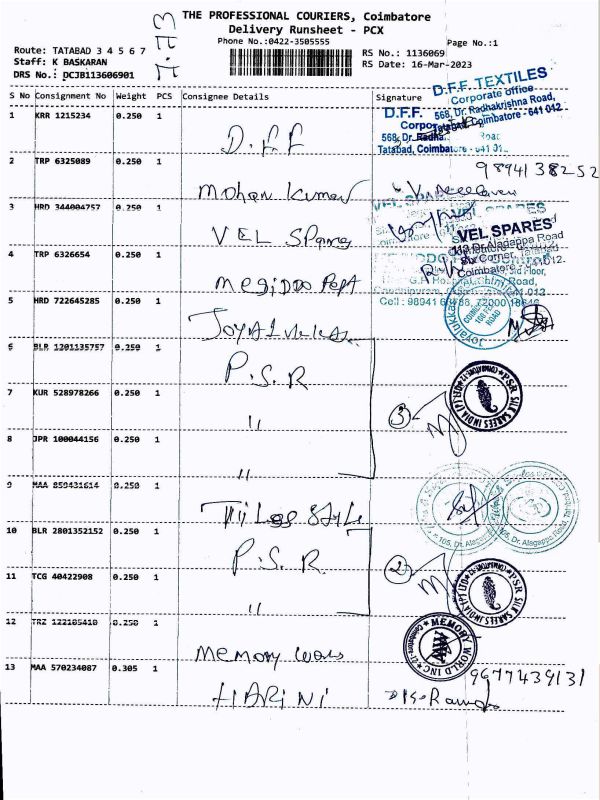 THE PROFESSIONAL COURIERS, Coimbatore
Delivery Runsheet - PCX
Phone No.:0422-3505555
Page No.:1
Route: TATABAD 3 4 5 6 7
Staff: K BASKARAN
DRS No.: DCJB113606901
RS No.: 1136069
RS Date: 16-Mar-2023
S No Consignment No Weight PCS Consignee Details Signature
1 KRR 1215234 0.250 1 D.F.F
D.F.F. TEXTILES
Corporate office
568, Dr. Radhakrishna Road,
Tatabad, Coimbatore - 641 012.
D.F.F.
2 TRP 6325089 0.250 1 Mohan Kumar
9894138252
3 HRD 344004757 0.250 1 VEL Spares
VEL SPARES
113 Dr. Alagappa Road
Six Corner, Tatabad
Coimbatore - 641 012.
4 TRP 6326654 0.250 1
5 HRD 722645285 0.250 1
6 BLR 1201135757 0.250 1 P.S.R
7 KUR 528978266 0.250 1 "
3
PSR SILK SAREES INDIA (P) LTD
8 JPR 100044156 0.250 1 "
9 MAA 859431614 0.250 1
105, Dr. Alagappa Road,
10 BLR 2801352152 0.250 1 P.S.R
2
11 TCG 40422908 0.250 1 "
PSR SILK SAREES INDIA (P) LTD
12 TRZ 122105410 0.250 1 Memory
MEMORY WORLD INC
13 MAA 570234087 0.305 1 HARINI
9677439131